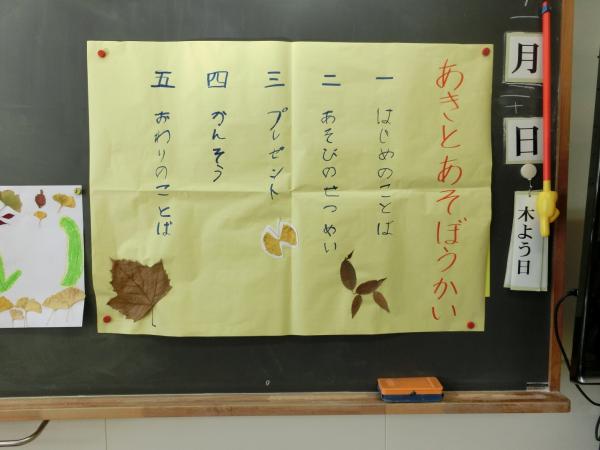 あきとあそぼうかい
一 はじめのことば
二 あそびのせつめい
三 プレゼント
四 かんそう
五 おわりのことば
月
日
木よう日